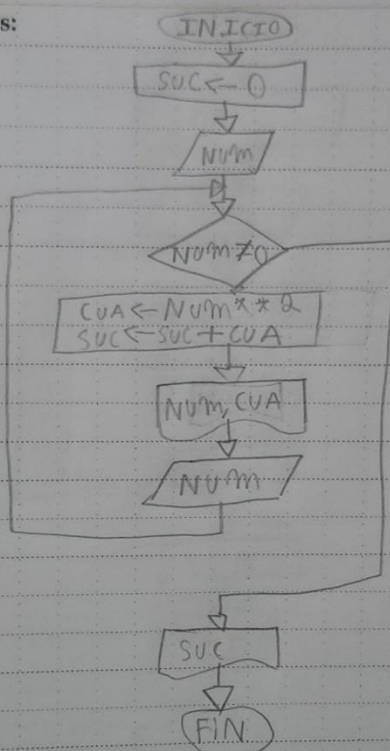 s:
INICIO
SUC ← 0
NUM
NUM ≠ 0
CUA ← NUM ** 2
SUC ← SUC + CUA
NUM, CUA
NUM
SUC
FIN